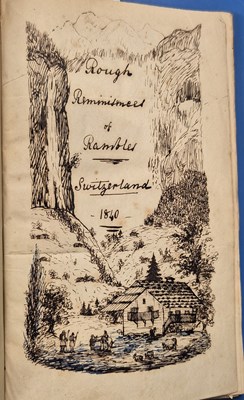 Rough
Reminisences
of
Rambles
Switzerland
1840